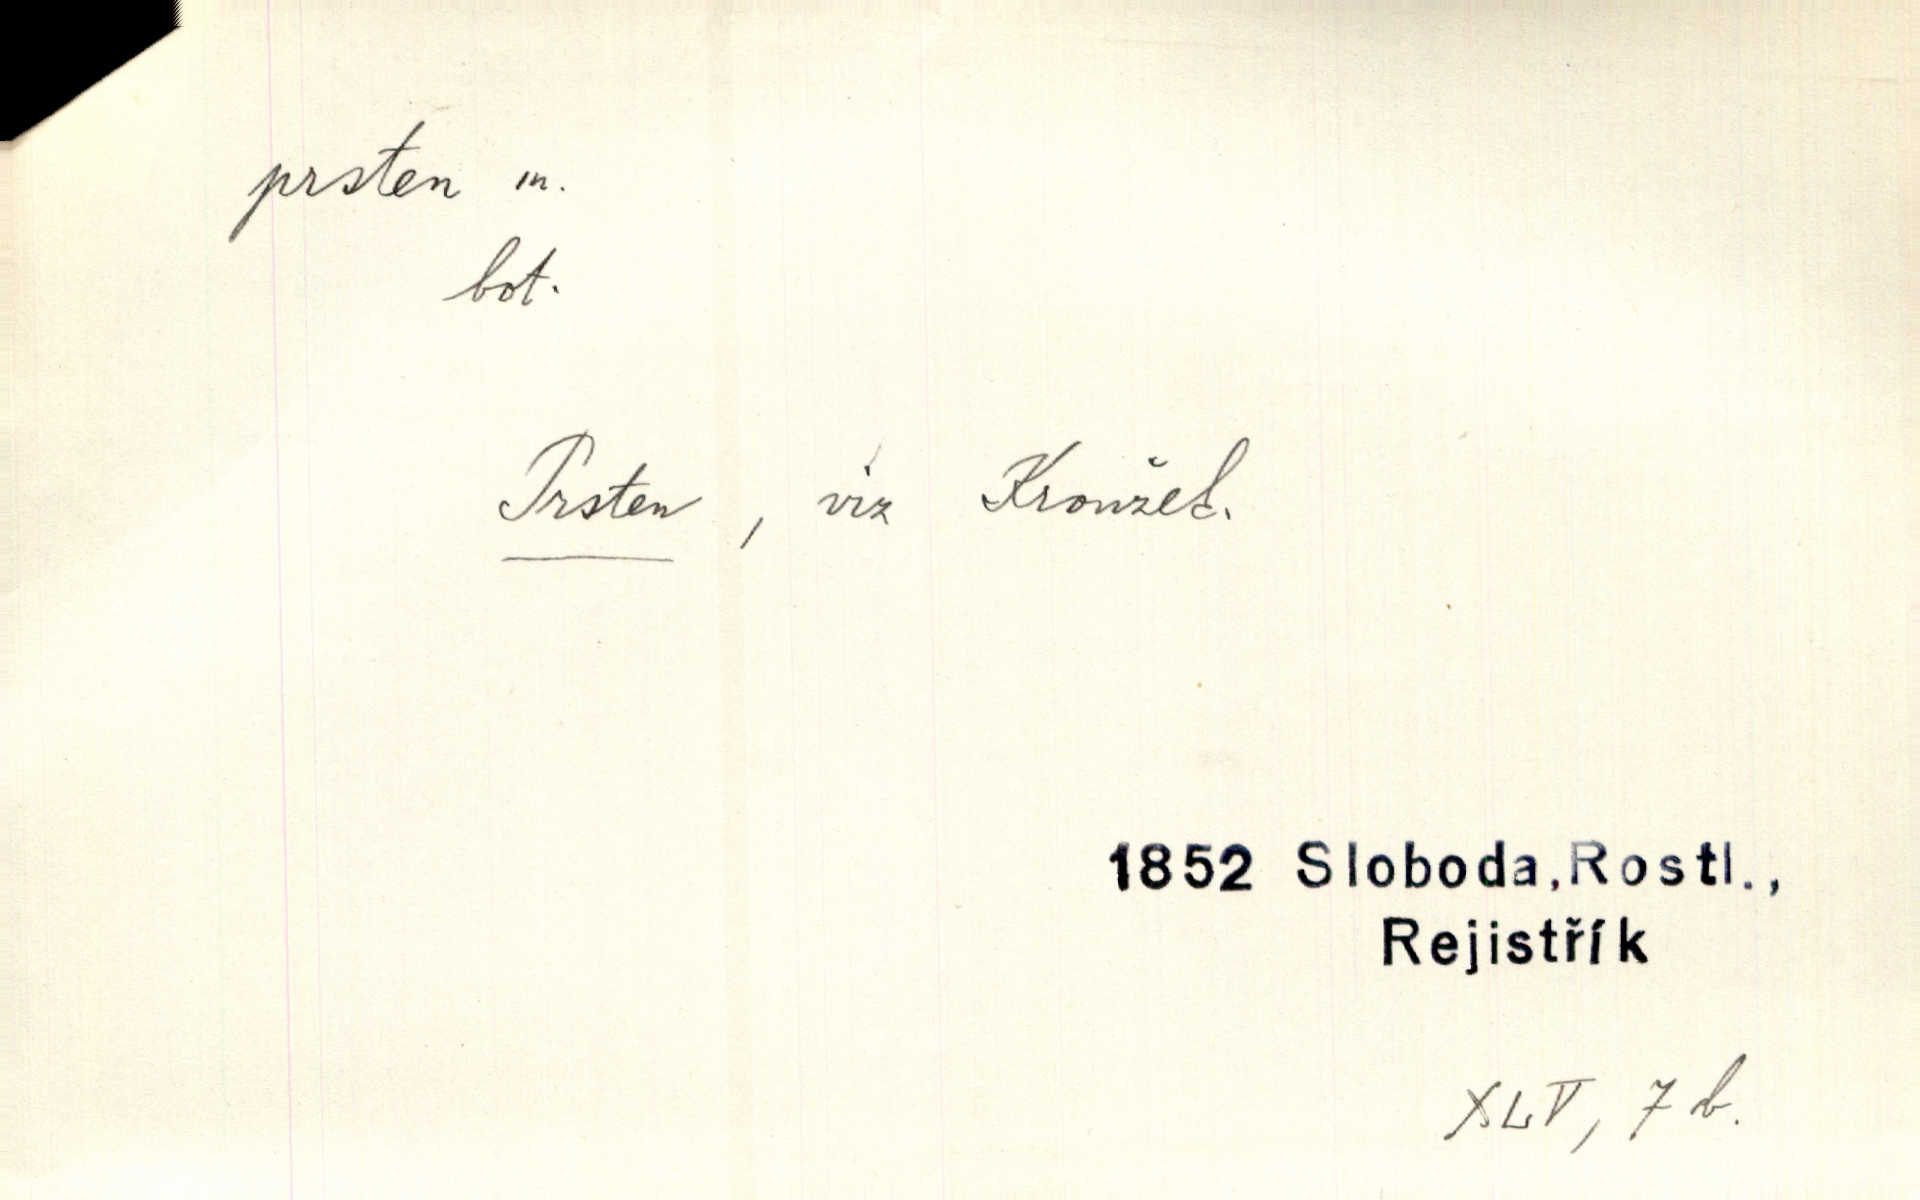 prsten m.
bot.
Prsten, viz Kroužek.
1852 Sloboda, Rostl.,
Rejistřík
XLV, 7 b.